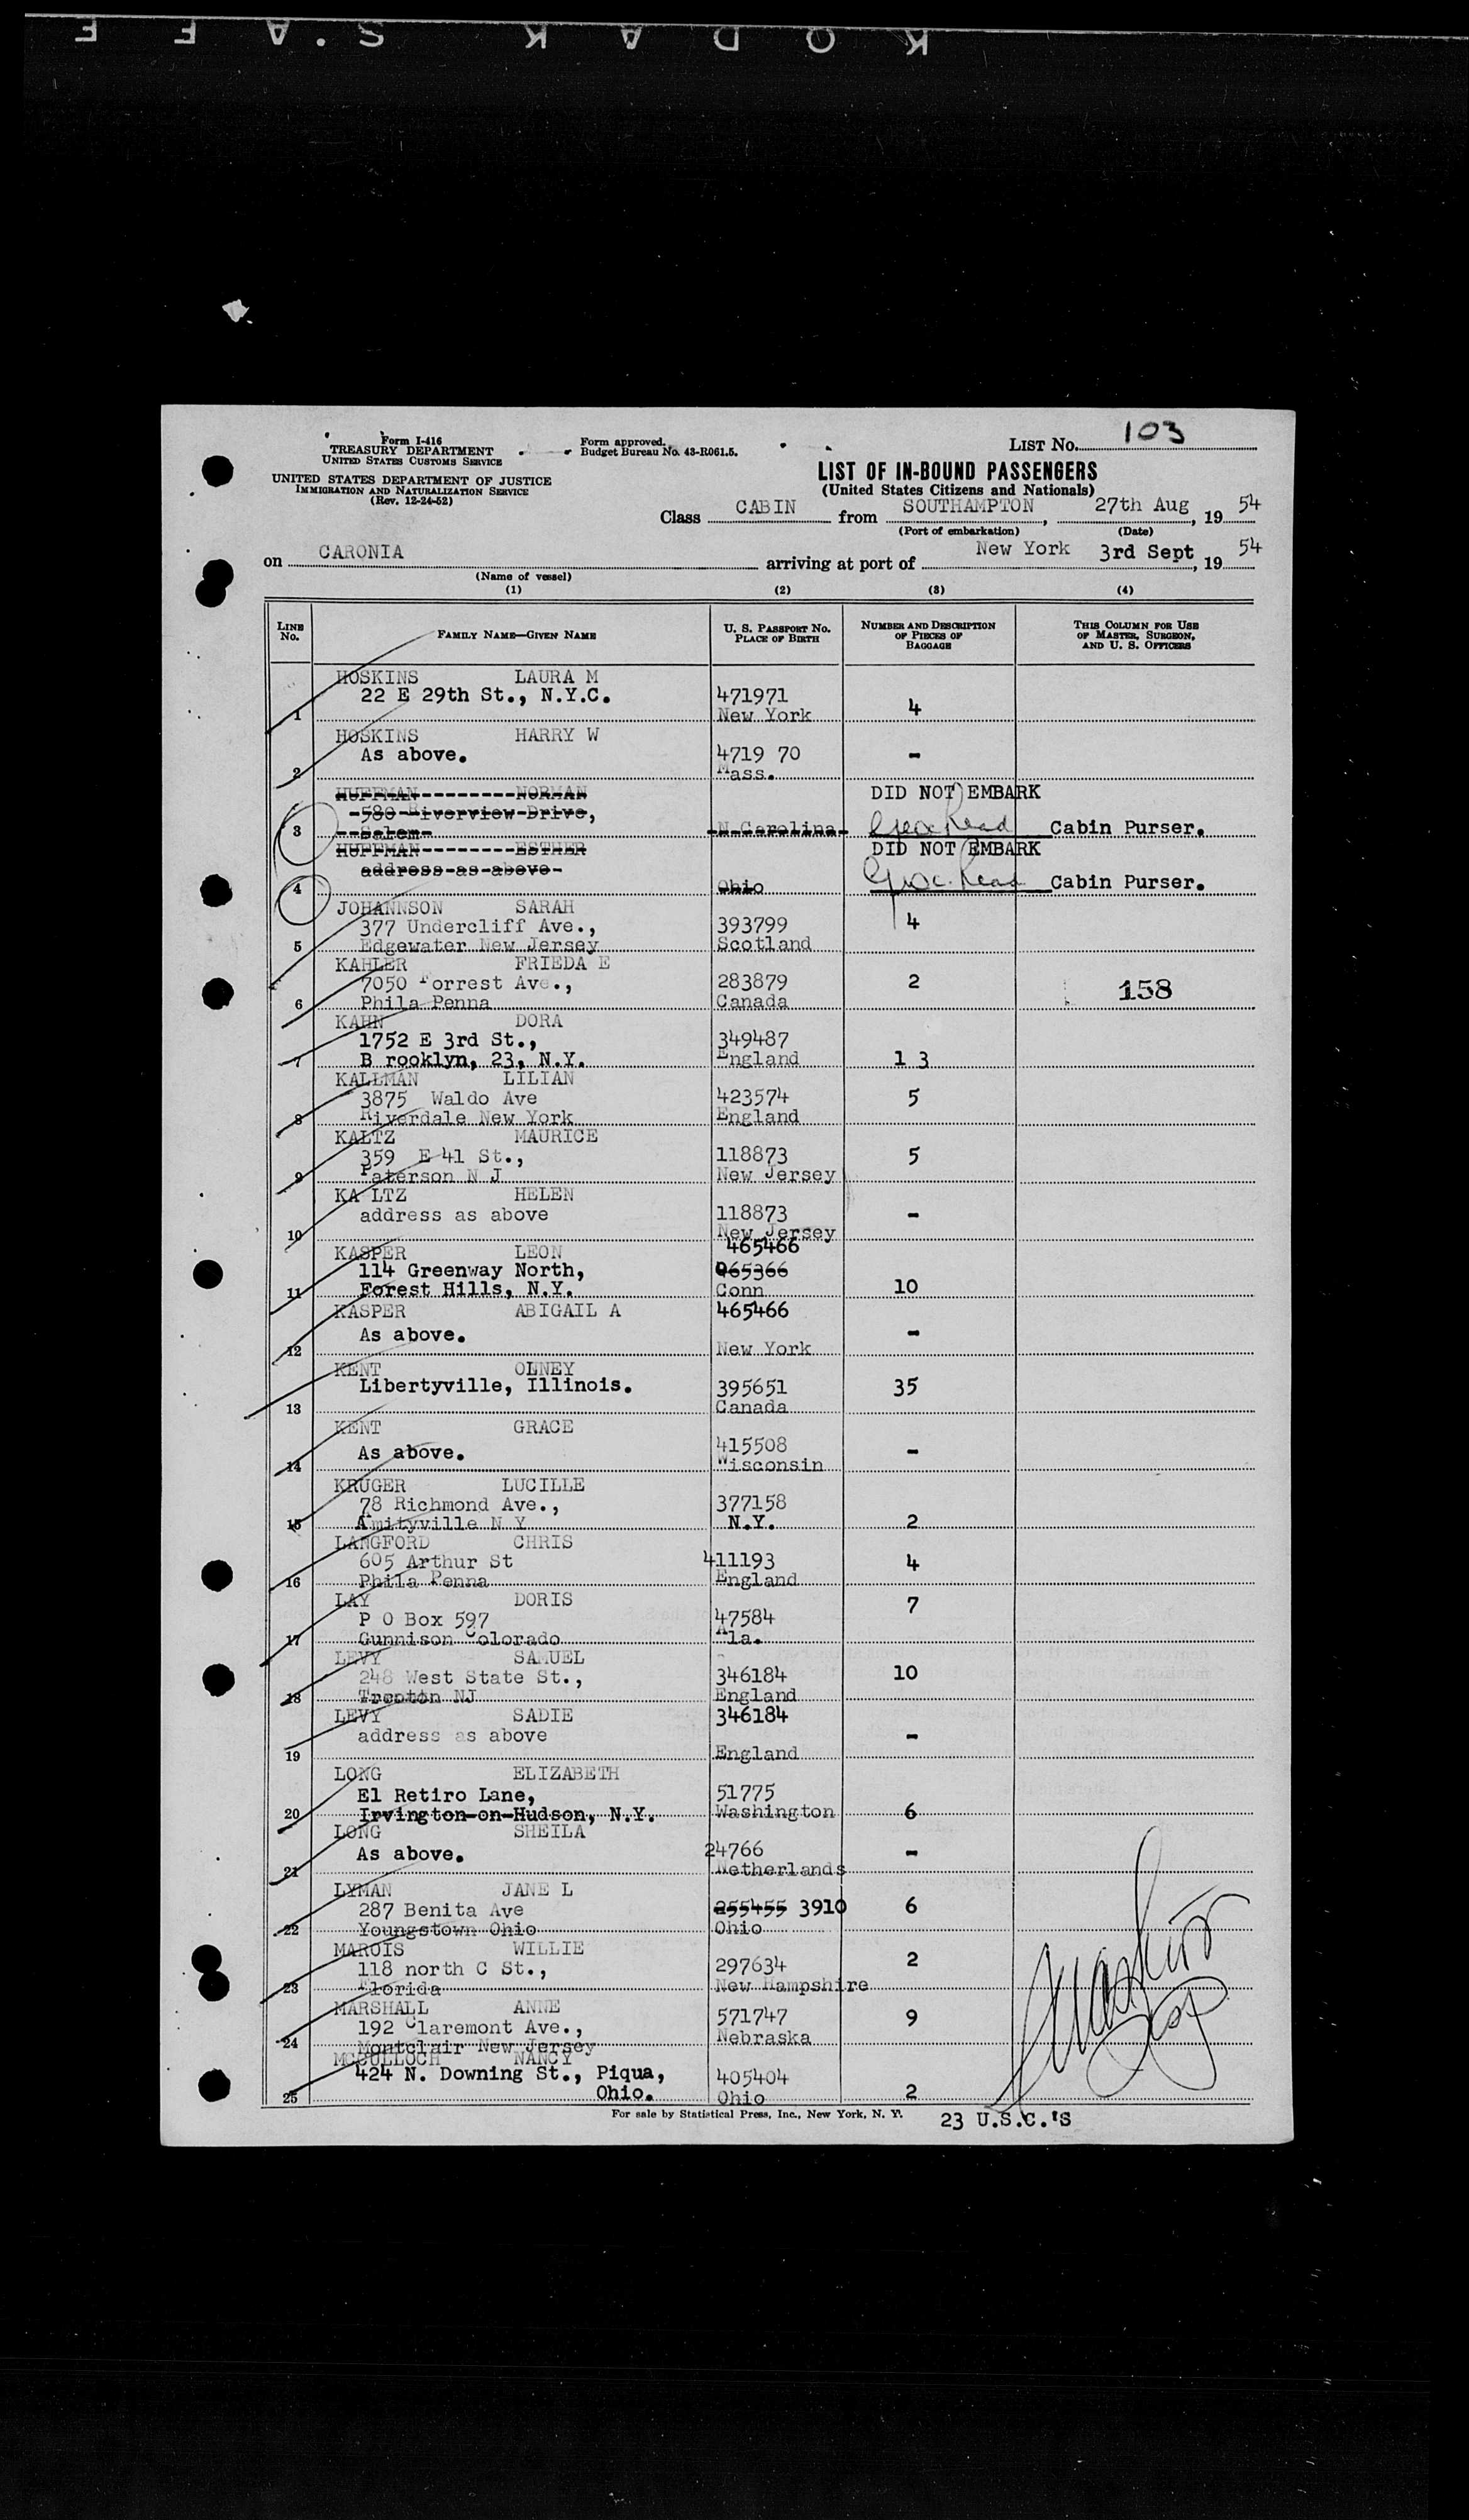 KODAK S.A F E
Form I-416
TREASURY DEPARTMENT
UNITED STATES CUSTOMS SERVICE
UNITED STATES DEPARTMENT OF JUSTICE
IMMIGRATION AND NATURALIZATION SERVICE
(Rev. 12-24-52)
Form approved.
Budget Bureau No. 43-R061.5.
LIST No. 103
LIST OF IN-BOUND PASSENGERS
(United States Citizens and Nationals)
Class CABIN from SOUTHAMPTON, 27th Aug, 19 54
(Port of embarkation) (Date)
on CARONIA arriving at port of New York 3rd Sept, 19 54
(Name of vessel)
(1) (2) (3) (4)
LINE No. FAMILY NAME—GIVEN NAME U. S. PASSPORT NO. PLACE OF BIRTH NUMBER AND DESCRIPTION OF PIECES OF BAGGAGE THIS COLUMN FOR USE OF MASTER, SURGEON, AND U. S. OFFICERS
HOSKINS LAURA M
22 E 29th St., N.Y.C. 471971
1 New York 4
HOSKINS HARRY W
As above. 4719 70 -
2 Mass.
HUFFMAN NORMAN DID NOT EMBARK
580 Riverview Drive,
3 Salem N Carolina Cabin Purser.
HUFFMAN ESTHER DID NOT EMBARK
address as above
4 Ohio Cabin Purser.
JOHANNSON SARAH
377 Undercliff Ave., 393799 4
5 Edgewater New Jersey Scotland
KAHLER FRIEDA E
7050 Forrest Ave., 283879 2
6 Phila Penna Canada 158
KAHN DORA
1752 E 3rd St., 349487
7 B rooklyn, 23, N.Y. England 1 3
KALLMAN LILIAN
3875 Waldo Ave 423574 5
8 Riverdale New York England
KALTZ MAURICE
359 E 41 St., 118873 5
9 Paterson N J New Jersey
KA LTZ HELEN
address as above 118873 -
10 New Jersey
KASPER LEON 465466
114 Greenway North, 465366
11 Forest Hills, N.Y. Conn 10
KASPER ABIGAIL A 465466
As above. -
12 New York
KENT OLNEY
Libertyville, Illinois. 395651 35
13 Canada
KENT GRACE
As above. 415508 -
14 Wisconsin
KRUGER LUCILLE
78 Richmond Ave., 377158
15 Amityville N Y N.Y. 2
LANGFORD CHRIS
605 Arthur St 411193 4
16 Phila Penna England
LAY DORIS 7
P O Box 597 47584
17 Gunnison Colorado Ala.
LEVY SAMUEL
248 West State St., 346184 10
18 Trenton NJ England
LEVY SADIE 346184
address as above -
19 England
LONG ELIZABETH
El Retiro Lane, 51775
20 Irvington-on-Hudson, N.Y. Washington 6
LONG SHEILA
As above. 24766 -
21 Netherlands
LYMAN JANE L
287 Benita Ave 255455 3910 6
22 Youngstown Ohio Ohio
MAROIS WILLIE
118 north C St., 297634 2
23 Florida New Hampshire
MARSHALL ANNE
192 Claremont Ave., 571747 9
24 Montclair New Jersey Nebraska
MCCULLOCH NANCY
424 N. Downing St., Piqua, 405404
25 Ohio. Ohio 2
For sale by Statistical Press, Inc., New York, N. Y. 23 U.S.C.'S